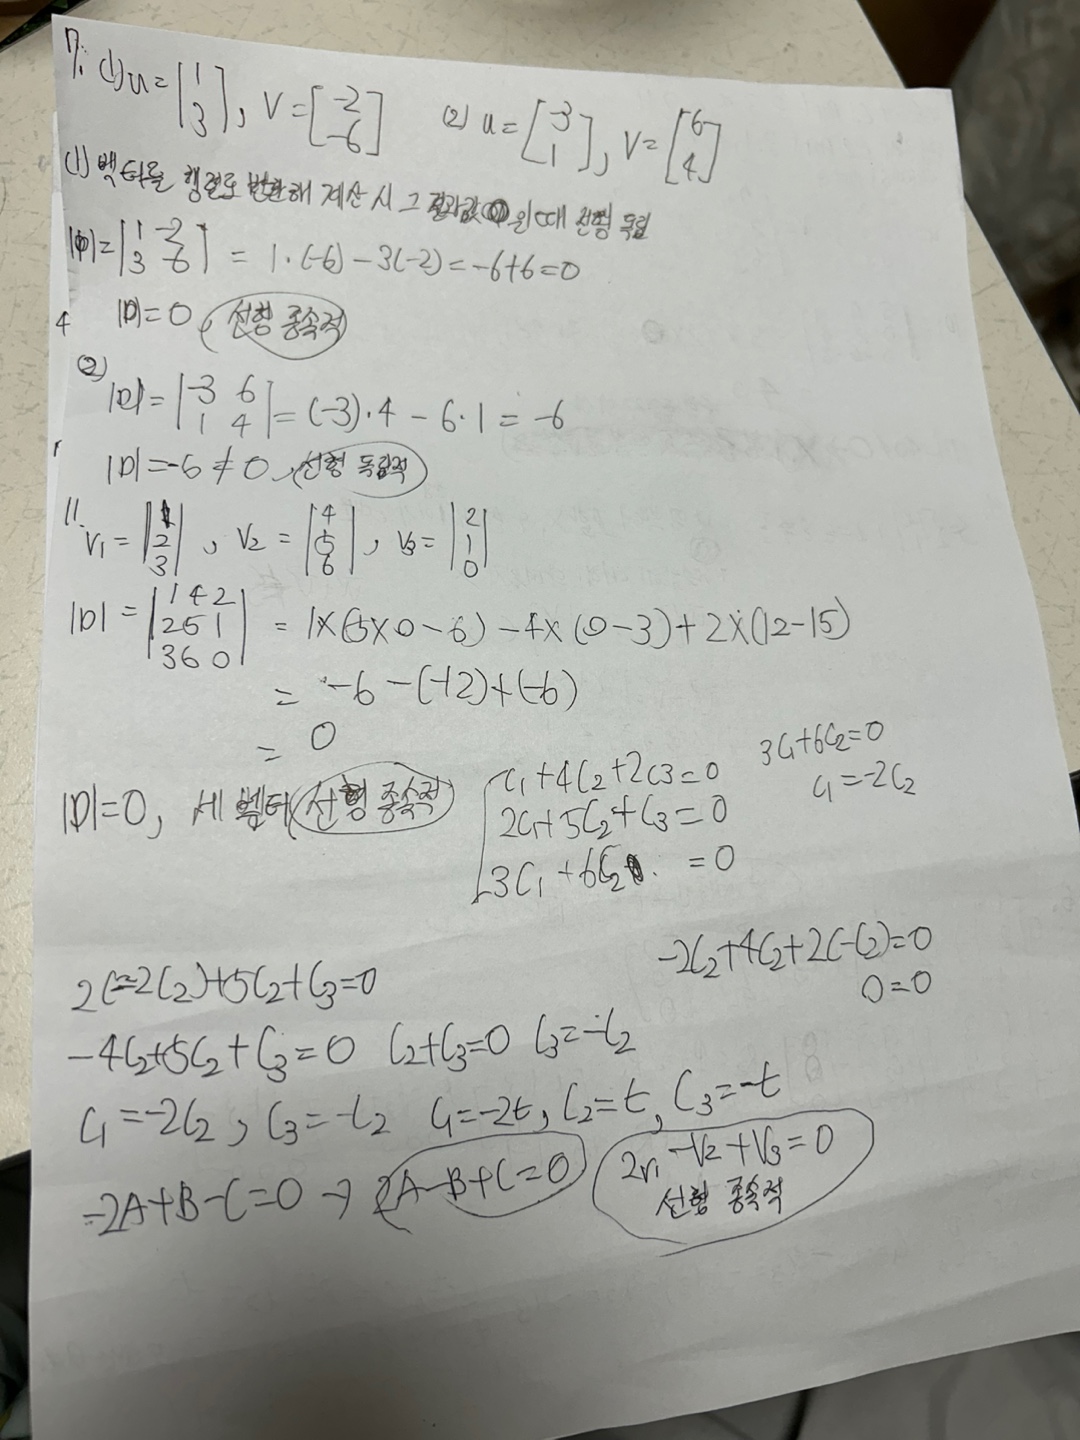 7. (1) u = [1 3], v = [-2 -6] (2) u = [-3 1], v = [6 4]
(1) 벡터를 행렬로 변환해 계산 시 그 결과값 0일 때 선형 독립
|D| = |1 -2 3 -6| = 1·(-6) - 3(-2) = -6+6 = 0
|D| = 0, 선형 종속적
(2)
|D| = |-3 6 1 4| = (-3)·4 - 6·1 = -6
|D| = -6 ≠ 0, 선형 독립적
11.
V1 = |1 2 3|, V2 = |4 5 6|, V3 = |2 1 0|
|D| = |1 4 2 2 5 1 3 6 0| = 1×(5×0-6) - 4×(0-3) + 2×(12-15)
= -6 - (-12) + (-6)
= 0
|D|=0, 세 벡터 선형 종속적
C1+4C2+2C3=0
2C1+5C2+C3=0
3C1+6C2 =0
3C1+6C2=0
C1=-2C2
2(-2C2)+5C2+C3=0
-2C2+4C2+2(-C2)=0
0=0
-4C2+5C2+C3=0 C2+C3=0 C3=-C2
C1=-2C2, C3=-C2 C1=-2t, C2=t, C3=-t
-2A+B-C=0 → 2A-B+C=0
2V1-V2+V3=0
선형 종속적